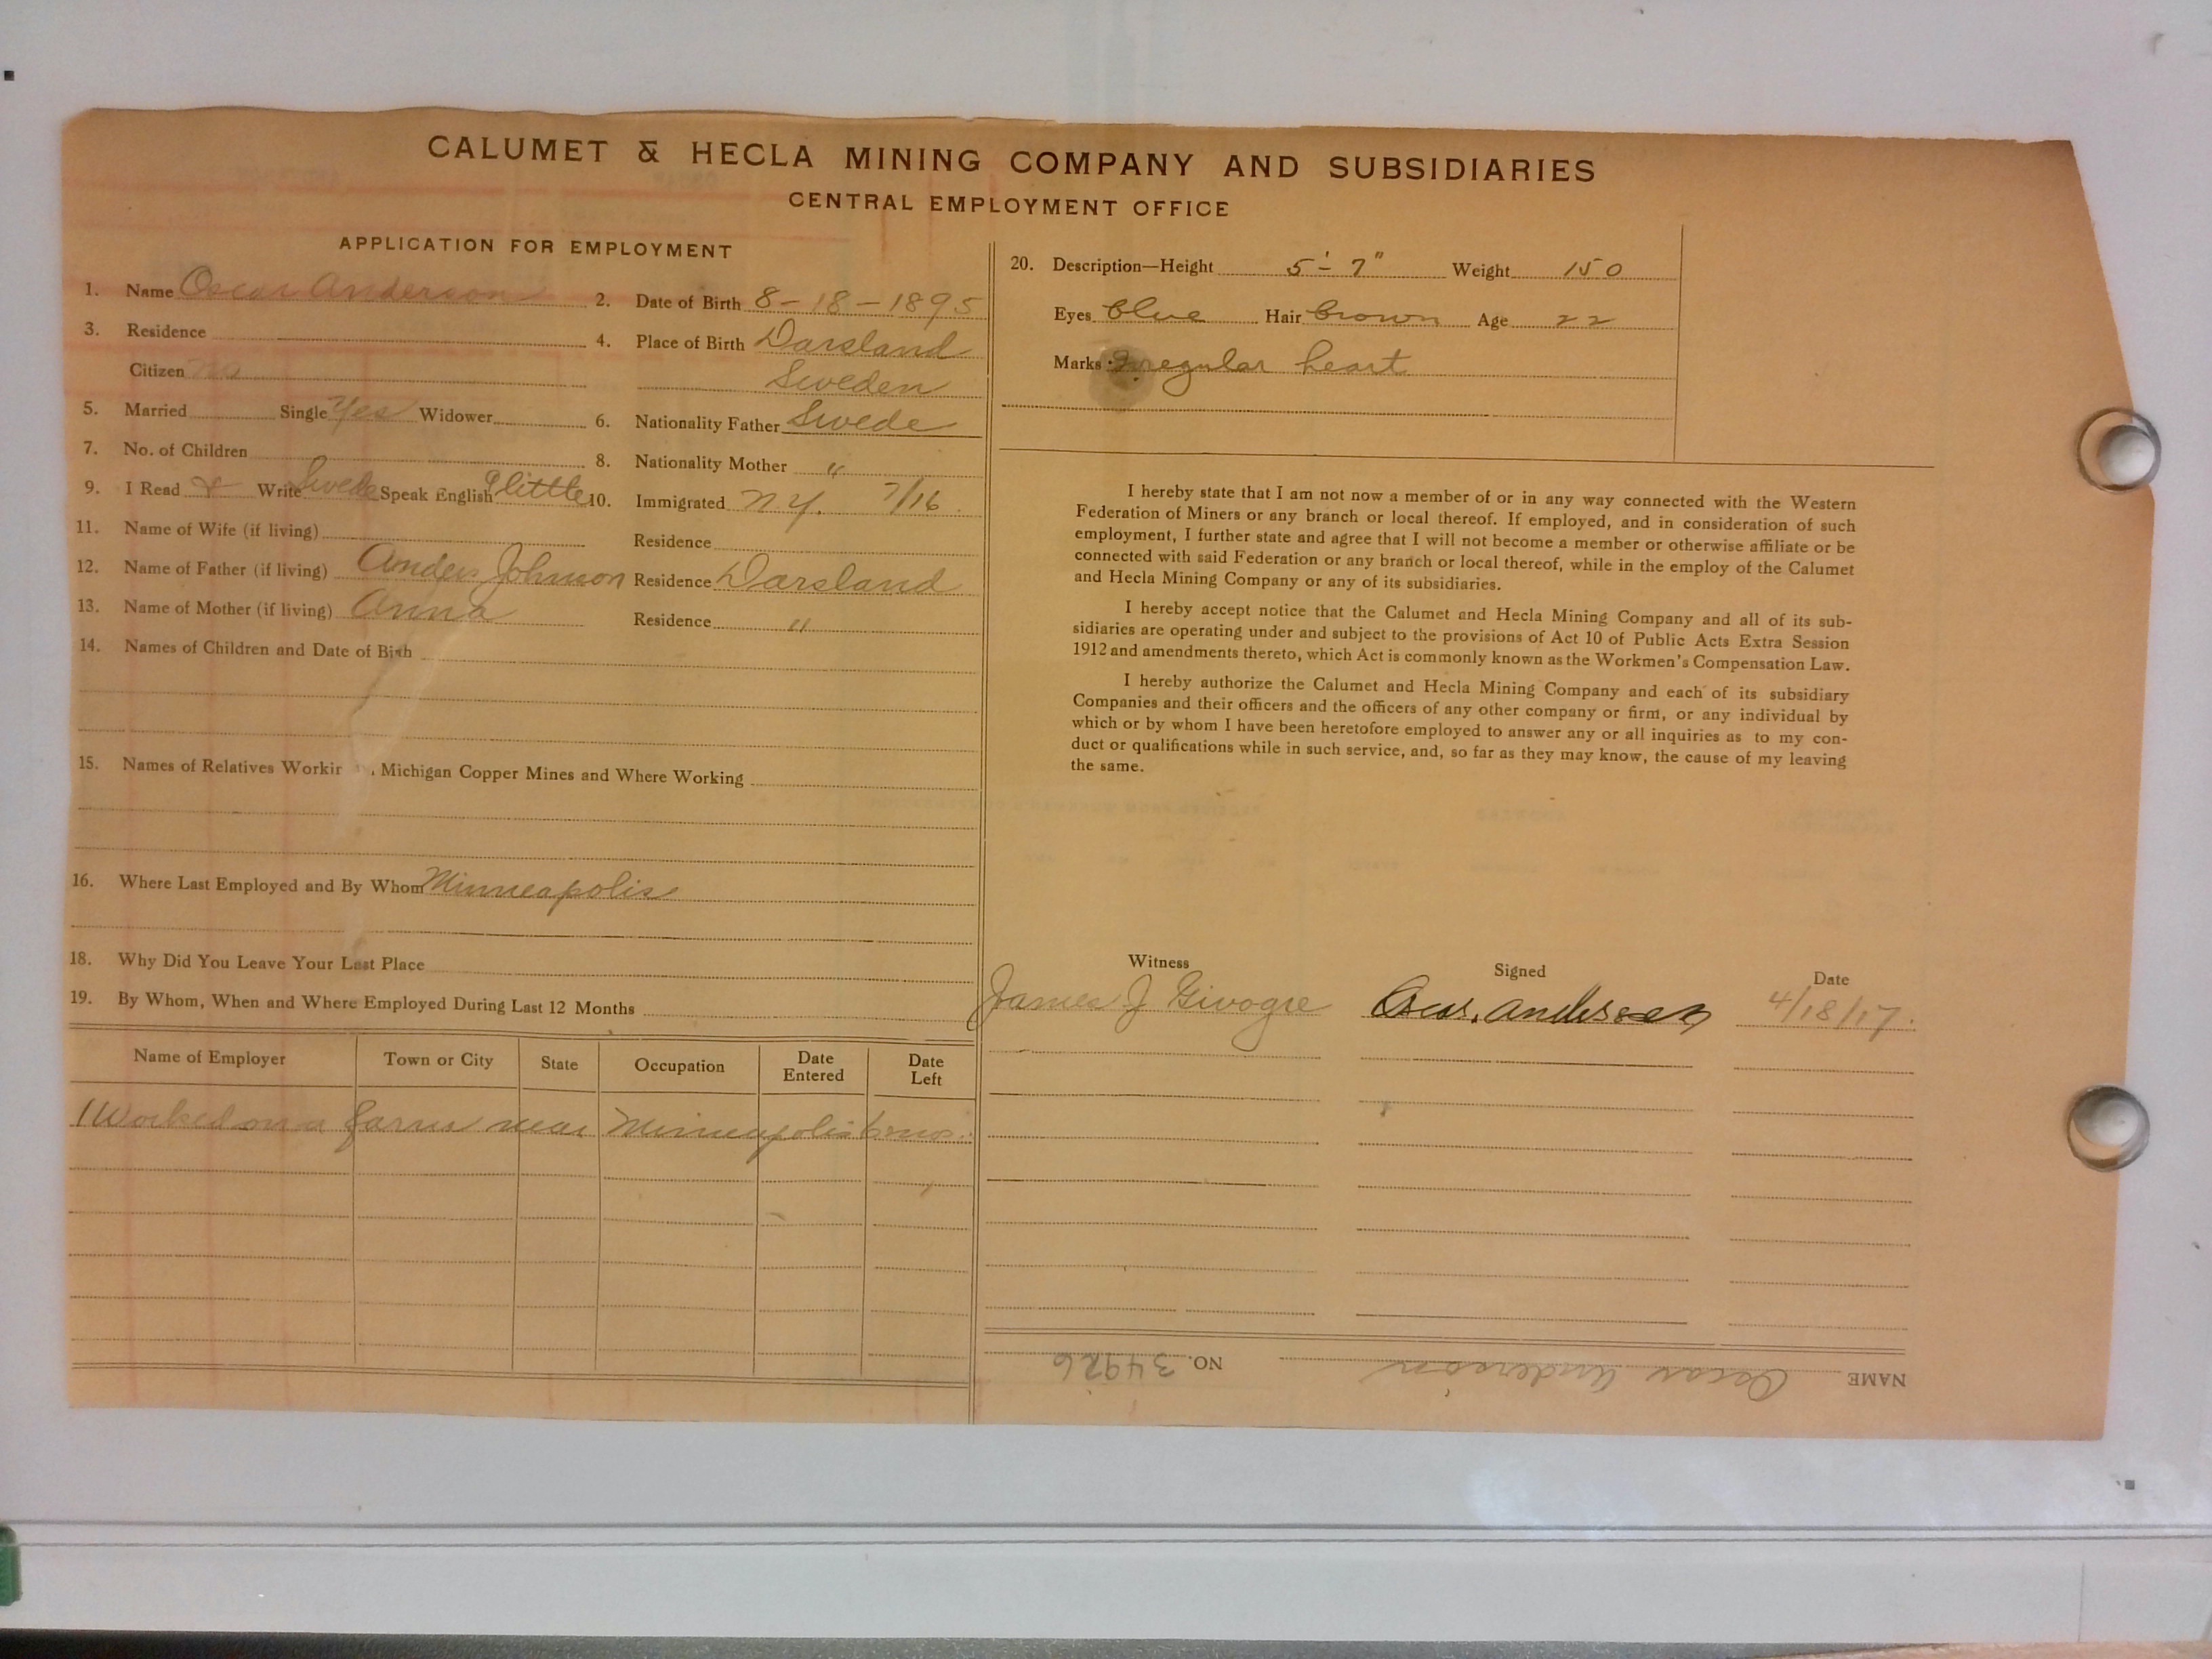 CALUMET & HECLA MINING COMPANY AND SUBSIDIARIES
CENTRAL EMPLOYMENT OFFICE
APPLICATION FOR EMPLOYMENT
1. Name Oscar Anderson 2. Date of Birth 8-18-1895
3. Residence 4. Place of Birth Darsland
Citizen No Sweden
5. Married Single Yes Widower 6. Nationality Father Swede
7. No. of Children 8. Nationality Mother "
9. I Read & Write Swede Speak English A little 10. Immigrated N.Y. 7/16
11. Name of Wife (if living) Residence
12. Name of Father (if living) Anders Johnson Residence Darsland
13. Name of Mother (if living) Anna Residence "
14. Names of Children and Date of Birth
15. Names of Relatives Workin Michigan Copper Mines and Where Working
16. Where Last Employed and By Whom Minneapolis
18. Why Did You Leave Your Last Place
19. By Whom, When and Where Employed During Last 12 Months
Name of Employer Town or City State Occupation Date Entered Date Left
Worked on a farm near Minneapolis 6 mos.
20. Description—Height 5'-7" Weight 150
Eyes blue Hair brown Age 22
Marks Irregular heart
I hereby state that I am not now a member of or in any way connected with the Western
Federation of Miners or any branch or local thereof. If employed, and in consideration of such
employment, I further state and agree that I will not become a member or otherwise affiliate or be
connected with said Federation or any branch or local thereof, while in the employ of the Calumet
and Hecla Mining Company or any of its subsidiaries.
I hereby accept notice that the Calumet and Hecla Mining Company and all of its sub-
sidiaries are operating under and subject to the provisions of Act 10 of Public Acts Extra Session
1912 and amendments thereto, which Act is commonly known as the Workmen's Compensation Law.
I hereby authorize the Calumet and Hecla Mining Company and each of its subsidiary
Companies and their officers and the officers of any other company or firm, or any individual by
which or by whom I have been heretofore employed to answer any or all inquiries as to my con-
duct or qualifications while in such service, and, so far as they may know, the cause of my leaving
the same.
Witness Signed Date
James J Oscar. Andersen 4/18/17.
NAME Oscar Anderson NO. 34926